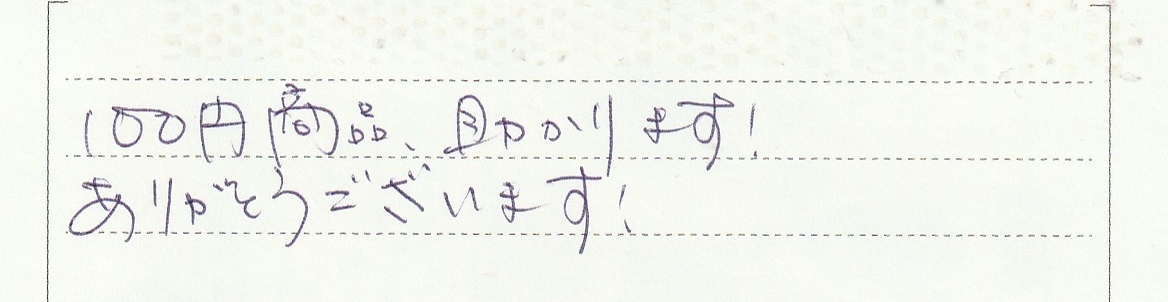 100円商品、助かります!
ありがとうございます!